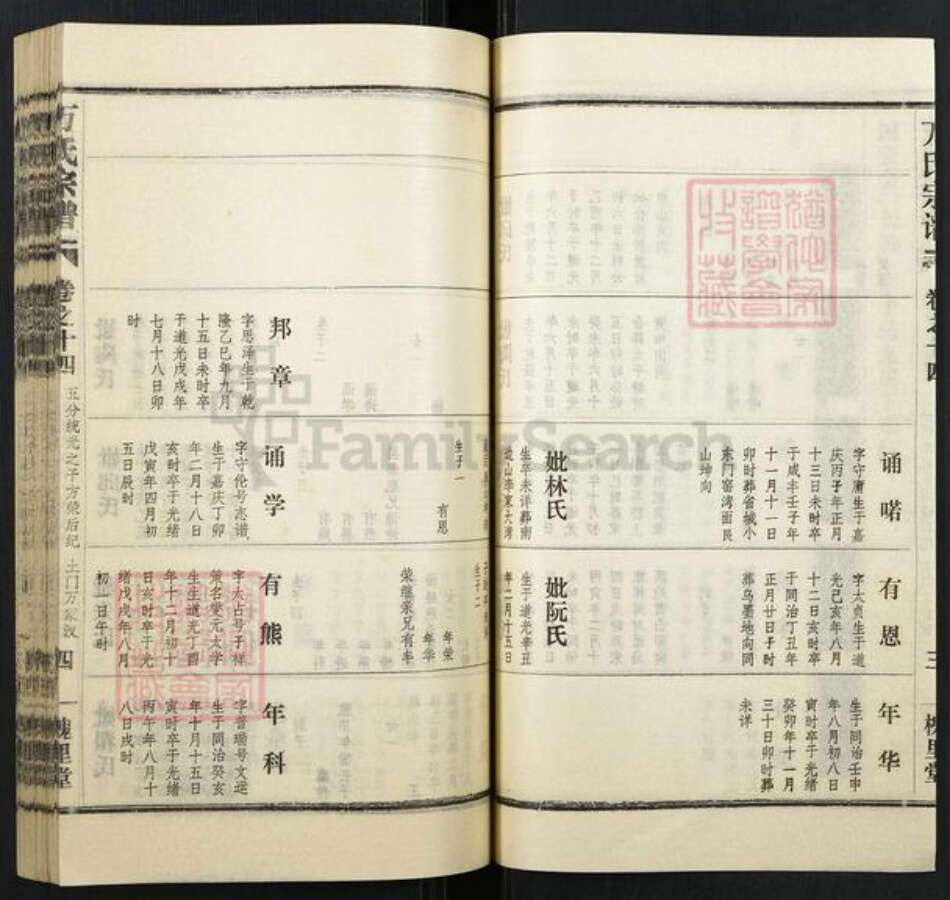 氏宗谱
卷之十四
三
槐里堂
诵喏
字守庸生于嘉
庆丙子年正月
十三日未时卒
于咸丰壬子年
十一月十一日
卯时葬省城小
东门窑湾面艮
山坤向
妣林氏
生卒未详葬南
边山李家大湾
有恩
字太贞生于道
光己亥年八月
十二日亥时卒
于同治丁丑年
正月廿日子时
葬乌墨地向同
妣阮氏
生于道光辛丑
年二月十五日
年华
生于同治壬申
年八月初八日
寅时卒于光绪
癸卯年十一月
三十日卯时葬
未详
生于一
有恩
生于二
年荣
年华
荣继亲兄有年
邦章
字思泽生于乾
隆乙巳年九月
十五日未时卒
于道光戊戌年
七月十八日卯
时
诵学
字守伦号志谐
生于嘉庆丁卯
年二月十八日
亥时卒于光绪
戊寅年四月初
五日辰时
有熊
字太占号子祥
策名燮元太学
生生道光丁酉
年十二月初十
日亥时卒于光
绪戊戌年八月
初一日午时
年科
字普瑞号文运
生于同治癸亥
年十月十五日
寅时卒于光绪
丙午年八月十
八日戌时
万氏宗谱
卷之十四
五分统光之子方荣后纪
土门万家汊
四
一槐里堂
FamilySearch